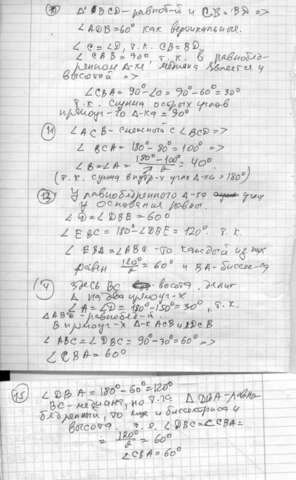 Δ BCD - равноб-й и CB = BD =>
∠ADB = 60° как вертикальные.
∠C = ∠D, т.к. CB = BD.
∠CAB = 90° т.к. в равнобед-
ренном Δ-ке медиана является и
высотой =>
∠CBA = 90° - ∠D = 90° - 60° = 30°
т.к. сумма острых углов
прямоуг-го Δ-ка = 90°
11 ∠ACB - смежный с ∠BCD =>
∠BCA = 180° - 80° = 100° =>
∠B = ∠A = (180° - 100°)/2 = 40°
(т.к. сумма внутр-х угл Δ-ка = 180°)
12 У равнобедренного Δ-ка углы
у основания равны.
∠D = ∠DBE = 60°
∠EBC = 180° - ∠DBE = 120° т.к.
∠EBA = ∠ABC - то каждый из них
равен 120°/2 = 60° и BA - биссе-са
Здесь BC высота, делит
Δ на два прямоуг-х
∠A = ∠D = 180° - 150° = 30°, т.к.
ΔABD - равнобед-й.
В прямоуг-х Δ-к ACB и DCB
∠ABC = ∠DBC = 90° - 30° = 60° =>
∠CBA = 60°
15 ∠DBA = 180° - 60° = 120°
BC - медиана, но т.к. Δ DBA - равно-
бедренный, то еще и биссектриса и
высота. т.е. ∠DBC = ∠CBA =
= 180°/2 = 60°
∠CBA = 60°